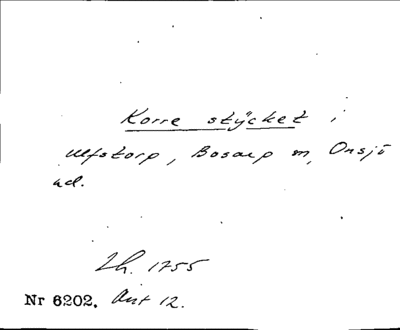 Korre stÿcket i
Ulfstorp, Bosarp sn, Onsjö
hd.
Lh. 1755
Nr 6202. Akt 12.